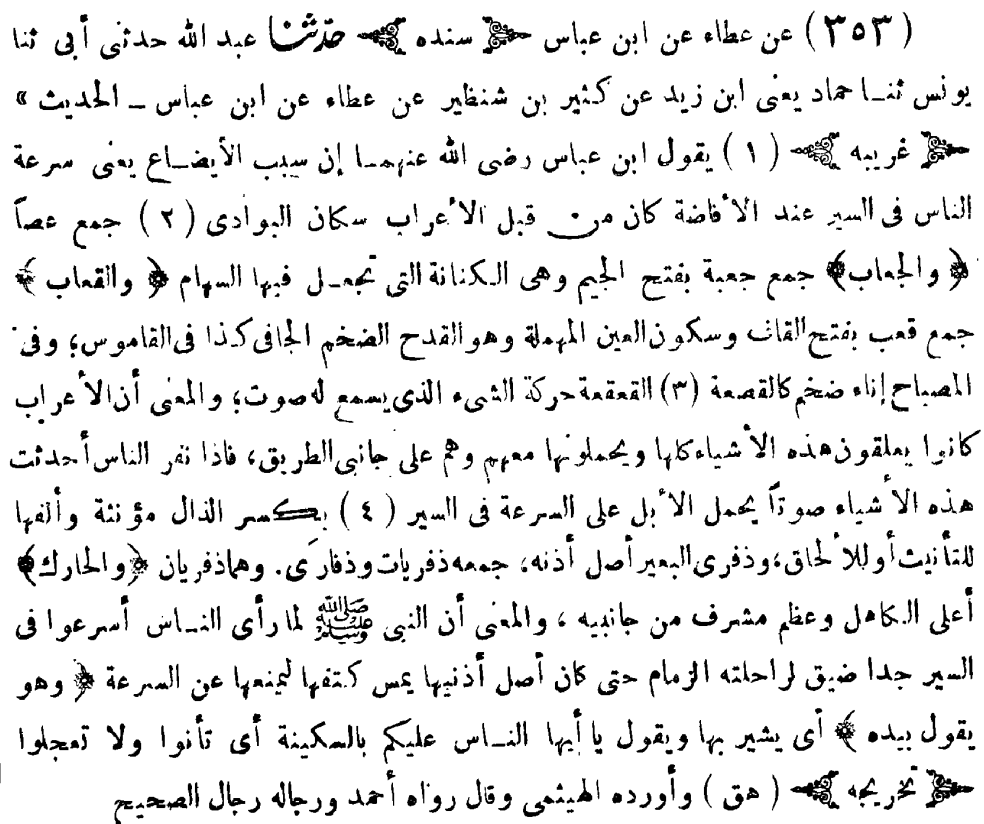 (٣٥٣) عن عطاء عن ابن عباس ﴿ سنده ﴾ حدّثنا عبد الله حدثنى أبى ثنا
يونس ثنا حماد يعنى ابن زيد عن كثير بن شنظير عن عطاء عن ابن عباس ـ الحديث »
﴿ غريبه ﴾ (١) يقول ابن عباس رضى الله عنهما إن سبب الأيضاع يعنى سرعة
الناس فى السير عند الأفاضة كان من قبل الأعراب سكان البوادى (٢) جمع عصاً
﴿ والجعاب ﴾ جمع جعبة بفتح الجيم وهى الكنانة التى تجعل فيها السهام ﴿ والقعاب ﴾
جمع قعب بفتح القاف وسكون العين المهملة وهو القدح الضخم الجافى كذا فى القاموس؛ وفى
المصباح إناء ضخم كالقصعة (٣) القعقعة حركة الشىء الذى يسمع له صوت؛ والمعنى أن الأعراب
كانوا يعلقون هذه الأشياء كلها ويحملونها معهم وهم على جانبى الطريق، فاذا نفر الناس أحدثت
هذه الأشياء صوتاً يحمل الأبل على السرعة فى السير (٤) بكسر الذال مؤنثة وألفها
للتأنيث أو للألحاق، وذفرى البعير أصل أذنه، جمعه ذفريات وذفارَى. وهما ذفريان ﴿ والحارك ﴾
أعلى الكاهل وعظم مشرف من جانبيه ، والمعنى أن النبى ﷺ لما رأى الناس أسرعوا فى
السير جدا ضيق لراحلته الزمام حتى كان أصل أذنيها يمس كتفها ليمنعها عن السرعة ﴿ وهو
يقول بيده ﴾ أى يشير بها ويقول يا أيها الناس عليكم بالسكينة أى تأنوا ولا تعجلوا
﴿ تخريجه ﴾ (هق) وأورده الهيثمى وقال رواه أحمد ورجاله رجال الصحيح